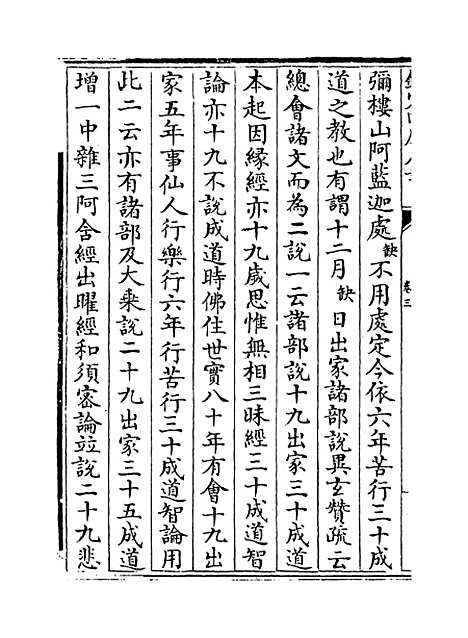 彌樓山阿藍迦處缺不用處定今依六年苦行三十成
道之教也有謂十二月缺日出家諸部說異玄贊疏云
總會諸文而為二說一云諸部說十九出家三十成道
本起因緣經亦十九歲思惟無相三昧經三十成道智
論亦十九不說成道時佛住世實八十年有會十九出
家五年事仙人行樂行六年行苦行三十成道智論用
此二云亦有諸部及大乘說二十九出家三十五成道
增一中雜三阿含經出曜經和須密論竝說二十九悲
卷三